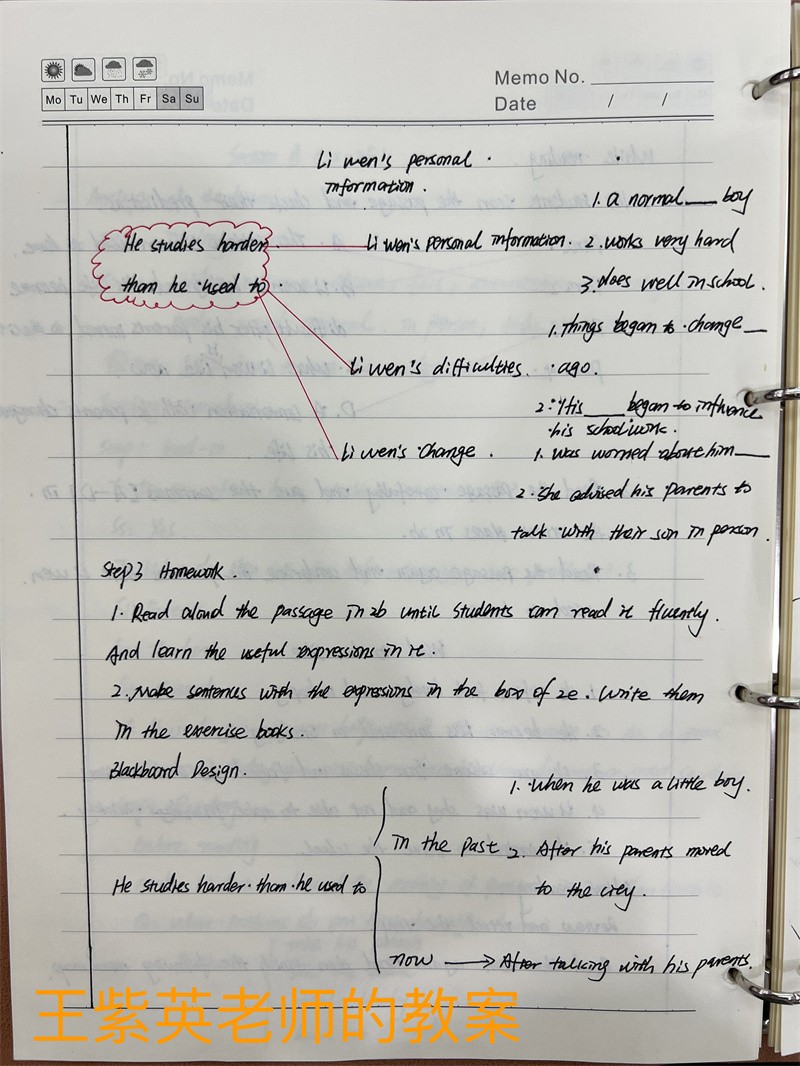 Memo No.
Mo Tu We Th Fr Sa Su
Date / /
Li wen's personal
Information.
1. a normal ___ boy
He studies harder
Li wen's personal information.
2. works very hard
than he used to
3. does well in school.
1. Things began to change __
Li wen's difficulties.
ago.
2. His ___ began to influence
his schoolwork.
Li wen's change.
1. was worried about him ___
2. She advised his parents to
talk with their son in person.
Step3 Homework.
1. Read aloud the passage in 2b until students can read it fluently.
And learn the useful expressions in it.
2. Make sentences with the expressions in the box of 2e. Write them
in the exercise books.
Blackboard Design.
1. When he was a little boy.
in the past
2. After his parents moved
He studies harder than he used to
to the city.
now → After talking with his parents.
王紫英老师的教案